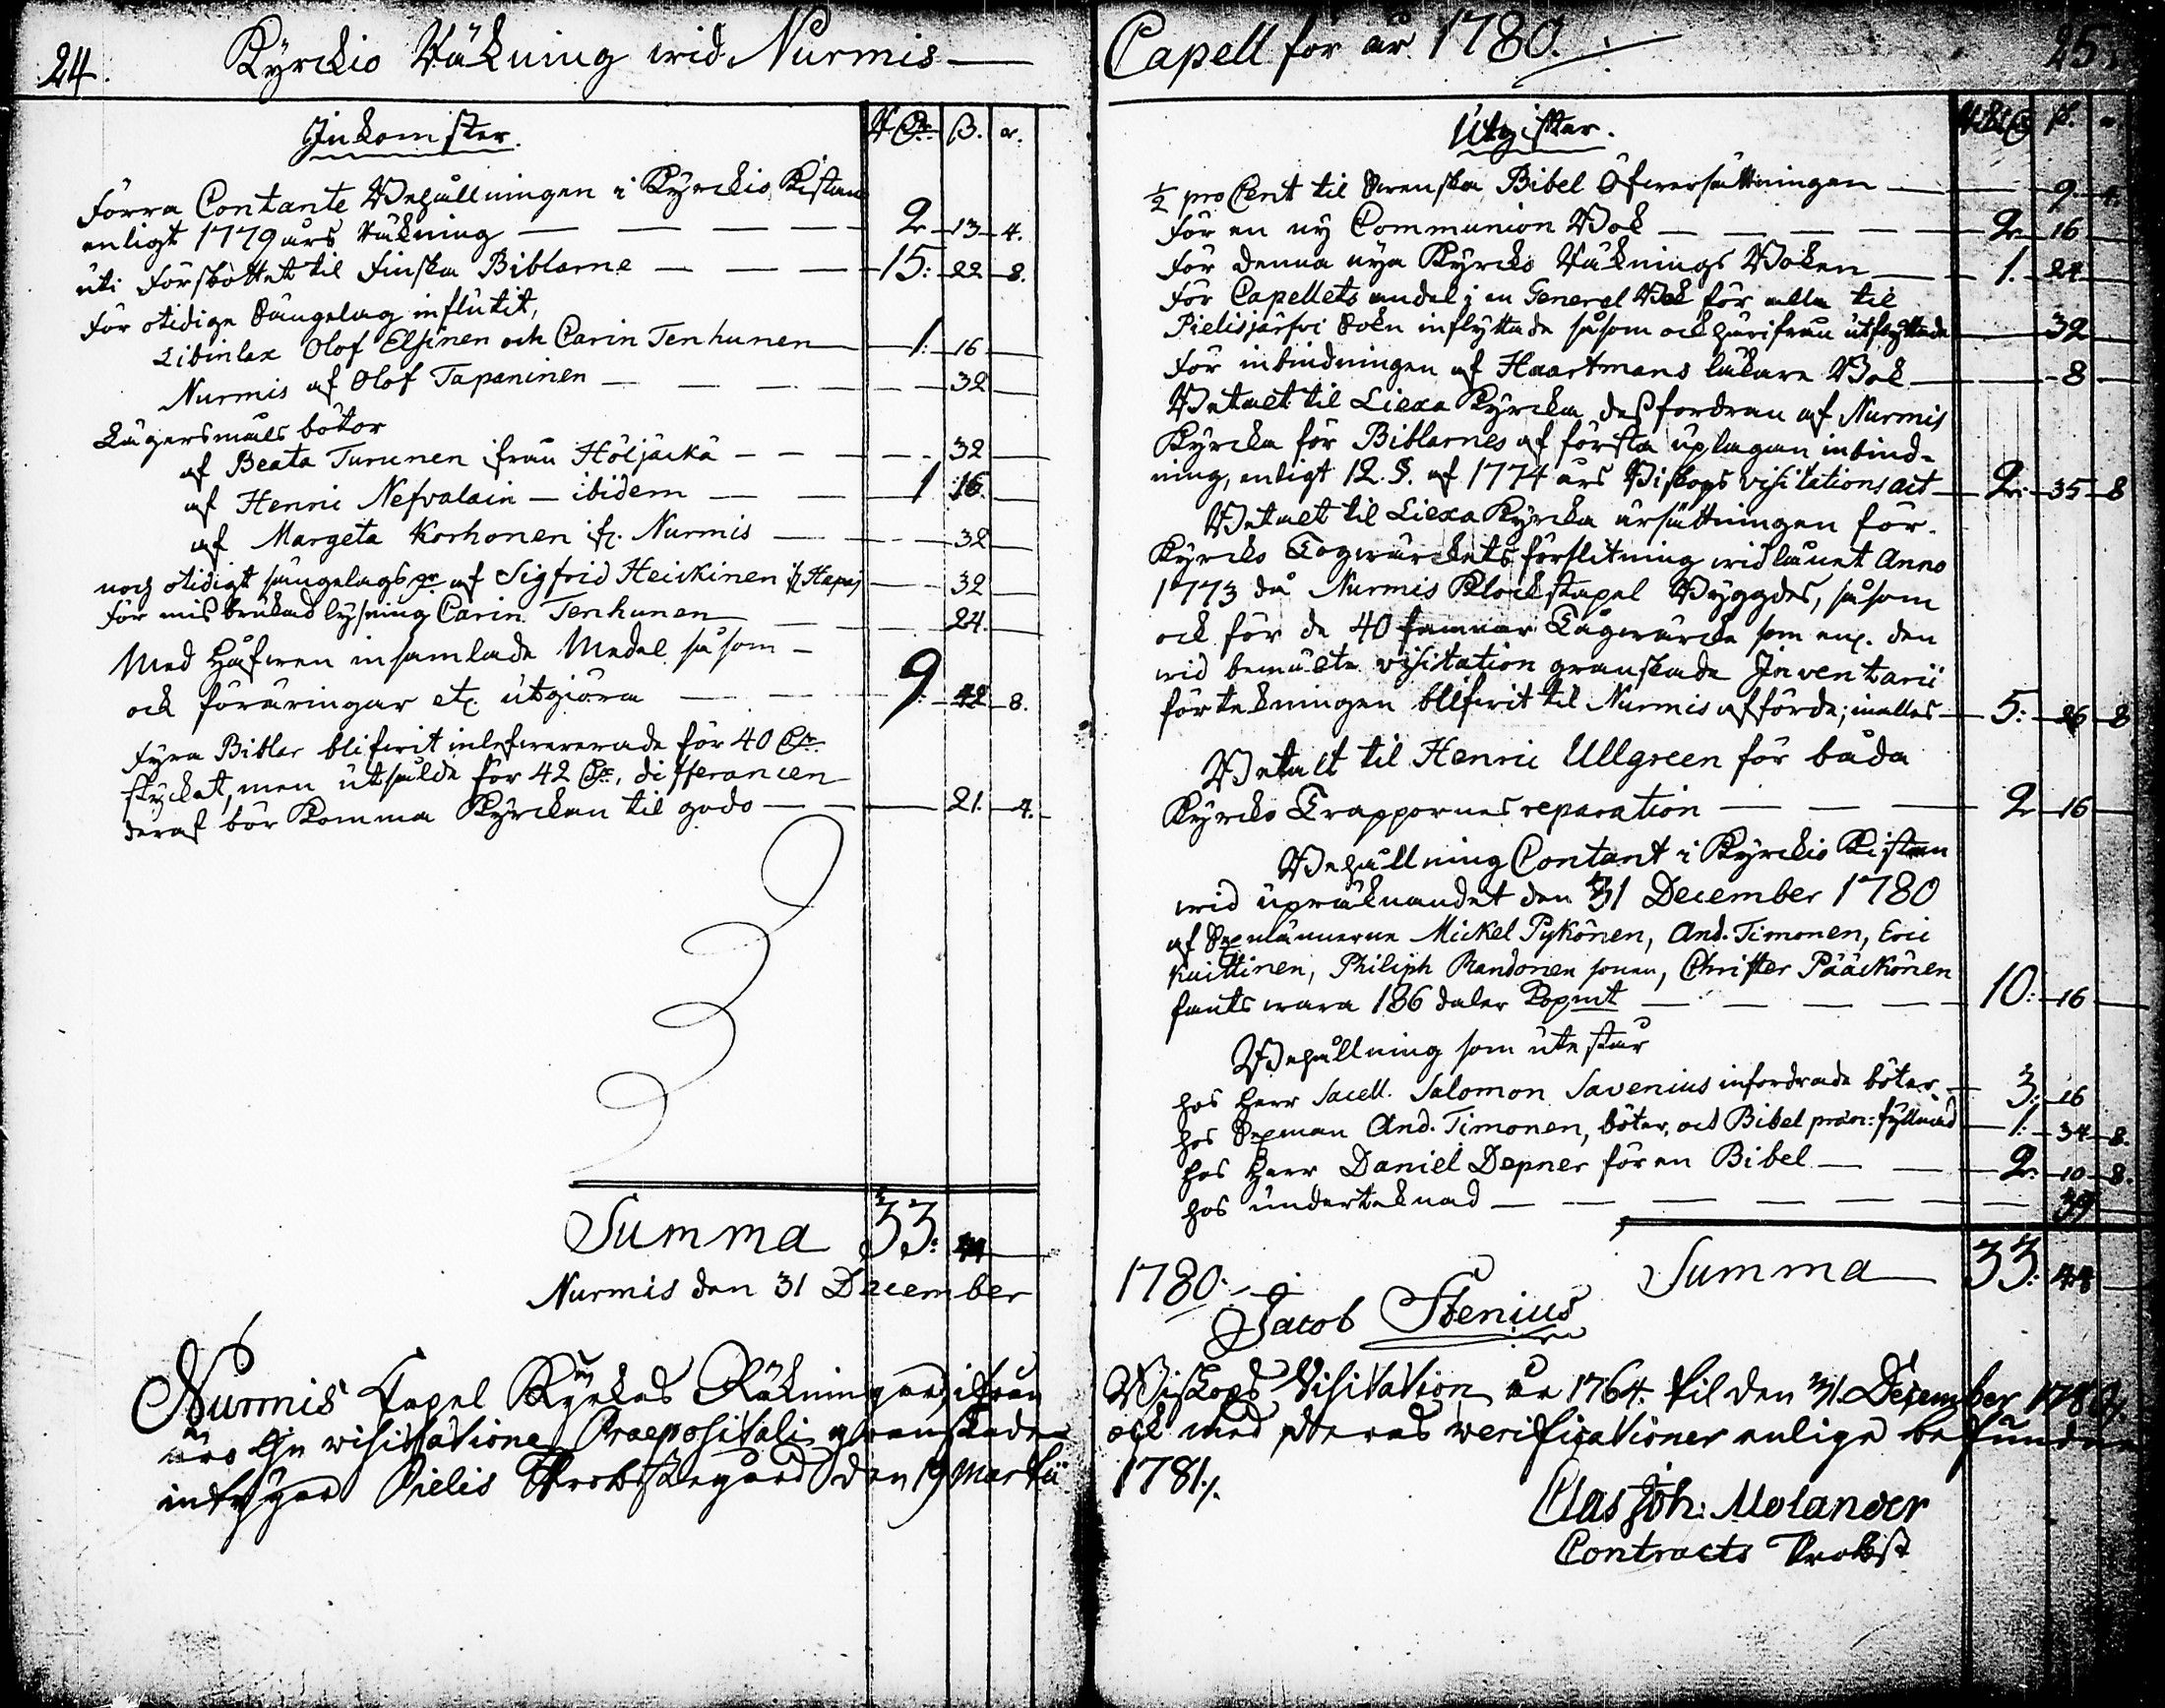 24.
Kyrckio Räkning wid Nurmis
Inkomster.
R Dr. ß. r.
Förra Contante Behållningen i Kyrckio Kistan
enligt 1779 års Räkning — 2 13 4.
uti Förskottet til Finska Biblarne — 15: 22 8.
För otidiga Sängelag influtit,
Libinlax Olof Elfinen och Carin Tenhunen 1: 16
Nurmis af Olof Tapaninen — 32
Lägersmåls böter
af Beata Turunen ifrån Höljäckä — 32
af Henric Nefvalain — ibidem — 1 16.
af Margeta Korhonen ifr. Nurmis — 32
noch otidigt sängelags af Sigfrid Heickinen if. Hapaj 32
För missbrukad lysning Carin Tenhunen 24.
Med Håfwen insamlade Medel så som
ock föräringar etc. utgiöra — 9. 42 8.
Fyra Biblar blifwit inlefwererade för 40 Dr.
stycket, men utsålde för 42 Dr., differancen
deraf bör komma Kyrckan til godo — 21. 4.
Summa 33: 44
Nurmis den 31 December
Nurmis Capel Kyrkas Räkningar, ifrån
åre visitatione Praepositali granskade
intygar Pielis Probstegård den 19 Martii
Capell för år 1780.
25.
Utgifter.
½ pro Cent til Swenska Bibel Öfwersättningen — 9. 4.
För en ny Communion Bok — 2 16
För denna nya Kyrcko Räknings Boken — 1. 24
För Capellets andel i en General Bok för alla til
Pielisjärfvi Sokn inflyttade såsom ock härifrån utflyttade 32
För inbindningen af Haartmans läkare Bok — 8
Betalt til Liexa Kyrcka dess fordran af Nurmis
Kyrcka för Biblarnes af första uplagan inbind-
ning, enligt 12. §. af 1774 års Biskops visitations act 2: 35 8
Betalt til Liexa Kyrcka ärsättningen för
Kyrcko Togwärckets förslitning wid lånet Anno
1773 då Nurmis Klockstapel Bygdes, såsom
ock för de 40 famnar Tågwärcke som enl. den
wid bemälte visitation granskade Inventarii
förtekningen blifwit til Nurmis afförde; inalles 5: 26 8
Betalt til Henric Ullgreen för båda
Kyrcko Trappornes reparation — 2 16
Behållning Contant i Kyrckio Kistan
wid upräknandet den 31 December 1780
af Sexmännerne Mickel Pykönen, And. Timonen, Eric
Kuittinen, Philiph Randonen sonen, Christer Pääckönen
fants wara 186 daler Kopmt — 10: 16
Behållning som ute står
hos Herr Sacell. Salomon Savenius infordrade böter 3: 16
hos Sexman And. Timonen, böter, och Bibel fyllnad 1: 34 8.
hos Herr Daniel Depner för en Bibel — 2: 10 8.
hos undertecknad — 39
Summa 33: 44
1780.
Jacob Stenius
Biskops Visitation år 1764. til den 31. December 1780.
ock med deras verificationer enlige befundne
1781.
Clas Joh: Molander
Contracts Probst